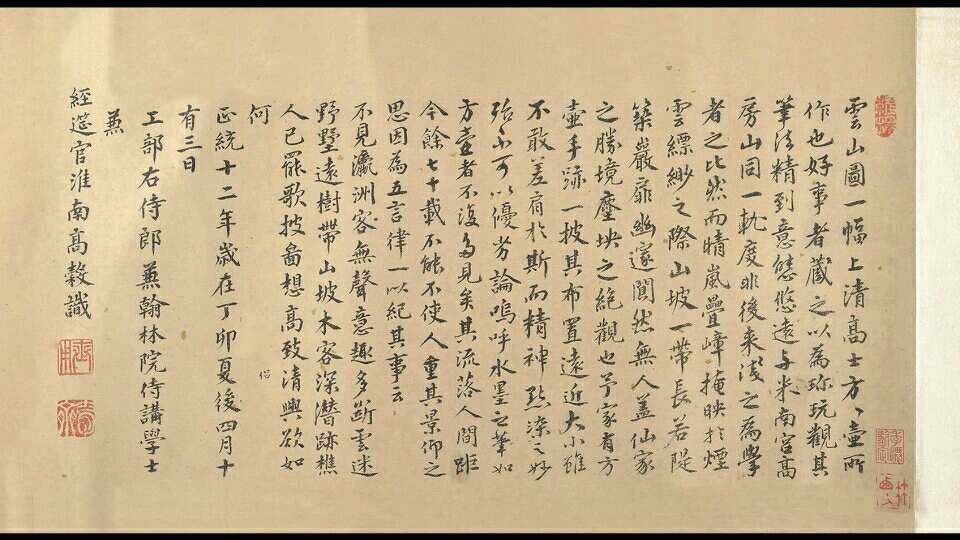 雲山圖一幅上清高士方〻壺所
作也好事者藏之以為珎玩觀其
筆法精到意態悠遠与米南宮高
房山同一軌度非後来淺之為學
者之比然而晴嵐疊嶂掩映於煙
雲縹緲之際山坡一帶長若隄
築巖扉幽邃闃然無人盖仙家
之勝境塵坱之絶觀也予家有方
壷手跡一披其布置遠近大小雖
不敢差肩於斯而精神點染之妙
殆不可以優劣論嗚呼水墨之筆如
方壷者不復多見矣其流落人間距
今餘七十載不能不使人重其景仰之
思因為五言律一以紀其事云
不見瀛洲客無聲意趣多斷雲迷
野墅遠樹帶山坡木客深潛跡樵
人已罷歌披啚想高致清興欲如
何
正統十二年歳在丁卯夏後四月十
有三日
工部右侍郎兼翰林院侍講學士
兼
經筵官淮南高穀識